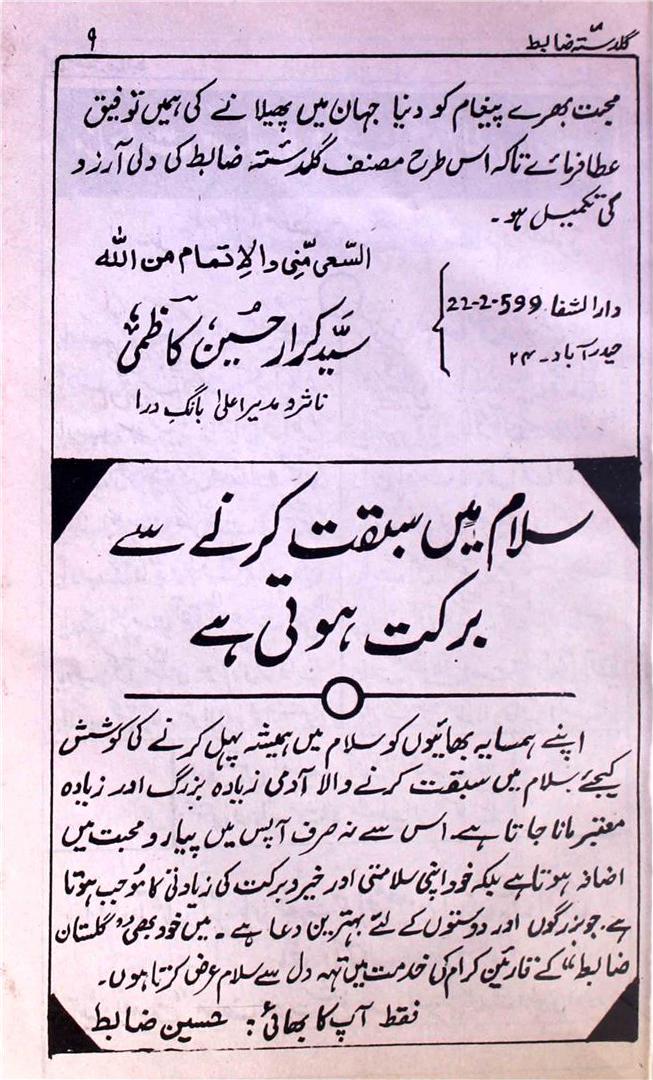 گلدستہ ضابط
۹
محبت بھرے پیغام کو دنیا جہان میں پھیلانے کی ہمیں توفیق
عطا فرمائے تاکہ اس طرح مصنف گلدستہ ضابط کی دلی آرزو
کی تکمیل ہو۔
السّعی منّی والاِتمام من اللہ
دارالشفا 22-2-599
حیدرآباد۔ ۲۴
سیّد کرار حسین کاظمی
ناشر و مدیر اعلیٰ بانگِ درا
سلام میں سبقت کرنے سے
برکت ہوتی ہے
اپنے ہمسایہ بھائیوں کو سلام میں ہمیشہ پہل کرنے کی کوشش
کیجئے سلام میں سبقت کرنے والا آدمی زیادہ بزرگ اور زیادہ
معتبر مانا جاتا ہے۔ اس سے نہ صرف آپس میں پیار و محبت میں
اضافہ ہوتا ہے بلکہ خود اپنی سلامتی اور خیر و برکت کی زیادتی کا مُوجب ہوتا
ہے۔ جو بزرگوں اور دوستوں کے لئے بہترین دعا ہے۔ میں خود بھی "گلستان
ضابط" کے قارئین کرام کی خدمت میں تہہ دل سے سلام عرض کرتا ہوں۔
فقط آپ کا بھائی: حسین ضابط